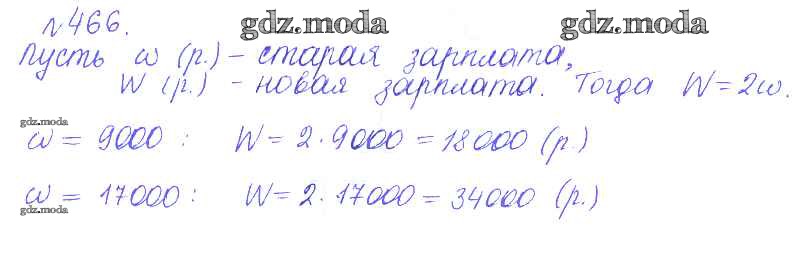 №466.
gdz.moda gdz.moda
Пусть w (р.) – старая зарплата,
W (р.) – новая зарплата. Тогда W = 2w.
gdz.moda
w = 9000 : W = 2·9000 = 18000 (р.)
w = 17000 : W = 2·17000 = 34000 (р.)
gdz.moda